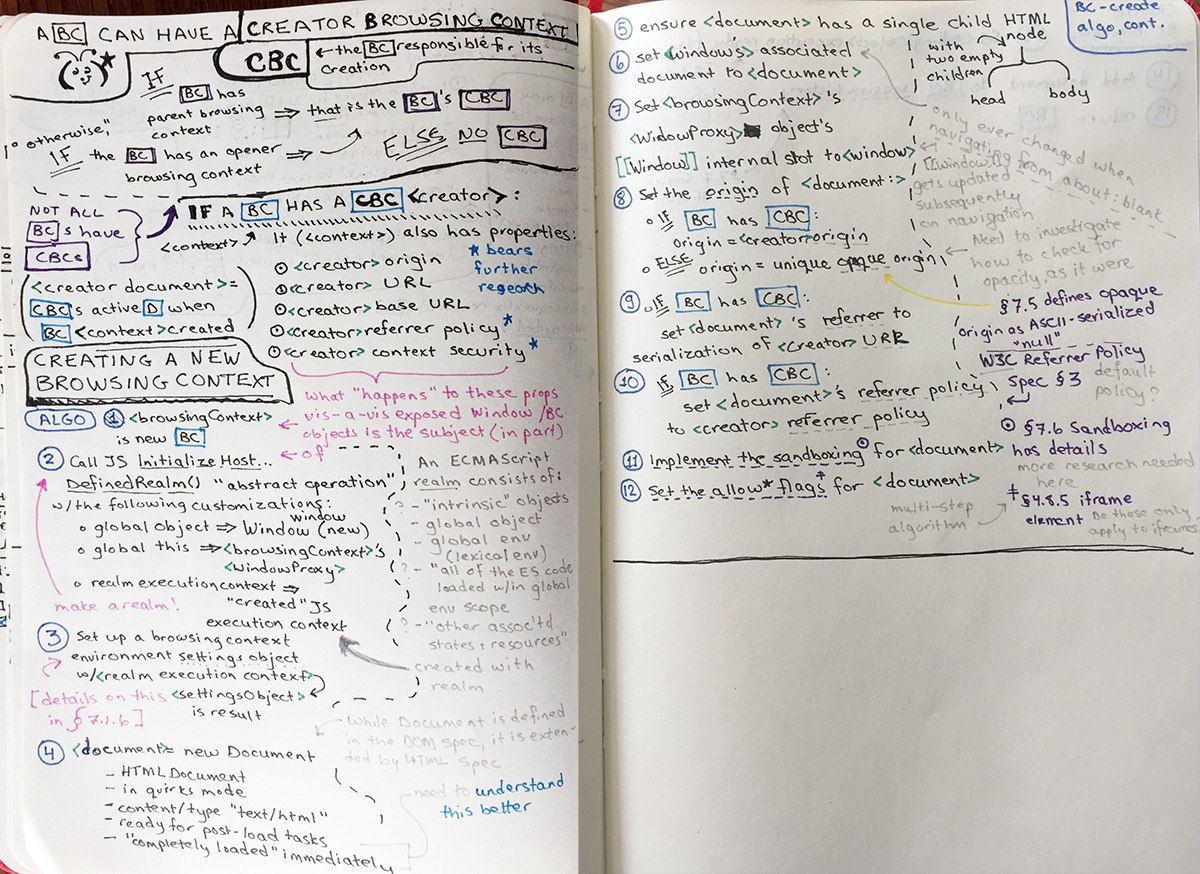 A BC CAN HAVE A CREATOR BROWSING CONTEXT
CBC
← the BC responsible for its
creation
IF BC has
parent browsing ⇒ that is the BC's CBC
context
"otherwise",
IF the BC has an opener ⇒
browsing context
ELSE NO CBC
NOT ALL
BC's have
CBCs
IF A BC HAS A CBC <creator>:
<context>
It (<context>) also has properties:
<creator> origin
<creator> URL
<creator> base URL
<creator> referrer policy*
<creator> context security*
* bears
further
<creator document> =
CBC's active D when
BC <context> created
CREATING A NEW
BROWSING CONTEXT
What "happens" to these props
vis-a-vis exposed Window/BC
objects is the subject (in part)
← of
ALGO ① <browsingContext>
is new BC
② Call JS Initialize Host...
DefinedRealm() "abstract operation"
w/the following customizations:
window
o global object ⇒ Window (new)
o global this ⇒ <browsingContext>'s
<windowProxy>
o realm execution context ⇒
"created" JS
execution context
make a realm!
An ECMAScript
realm consists of:
? - "intrinsic" objects
- global object
- global env
(lexical env)
? - "all of the ES code
loaded w/in global
env scope
? - "other assoc'td
states + resources"
created with
realm
③ Set up a browsing context
environment settings object
w/<realm execution context>
<settingsObject>
is result
[details on this
in §7.1.6]
While Document is defined
in the DOM spec, it is exten-
ded by HTML spec
④ <document> = new Document
- HTML Document
- in quirks mode
- content/type "text/html"
- ready for post-load tasks
- "completely loaded" immediately
need to understand
this better
BC-create
algo, cont.
⑤ ensure <document> has a single child HTML
node
with
two empty
children
head body
⑥ set <window's> associated
document to <document>
⑦ Set <browsingContext>'s
<WindowProxy> object's
[[Window]] internal slot to <window>
only ever changed when
navigating from about:blank
[[window]]
gets updated
subsequently
on navigation
⑧ Set the origin of <document:>
o IF BC has CBC:
origin = <creator> origin
o ELSE origin = unique opaque origin
Need to investigate
how to check for
opacity, as it were
§7.5 defines opaque
origin as ASCII-serialized
"null"
⑨ o IF BC has CBC:
set <document>'s referrer to
serialization of <creator> URR
⑩ IF BC has CBC:
set <document>'s referrer policy
to <creator> referrer policy
W3C Referrer Policy
Spec §3
default
policy?
⑪ Implement the sandboxing for <document>
§7.6 Sandboxing
has details
more research needed
here
⑫ Set the allow* flags‡ for <document>
multi-step
algorithm
‡ §4.8.5 iframe
element
Do these only
apply to iframes